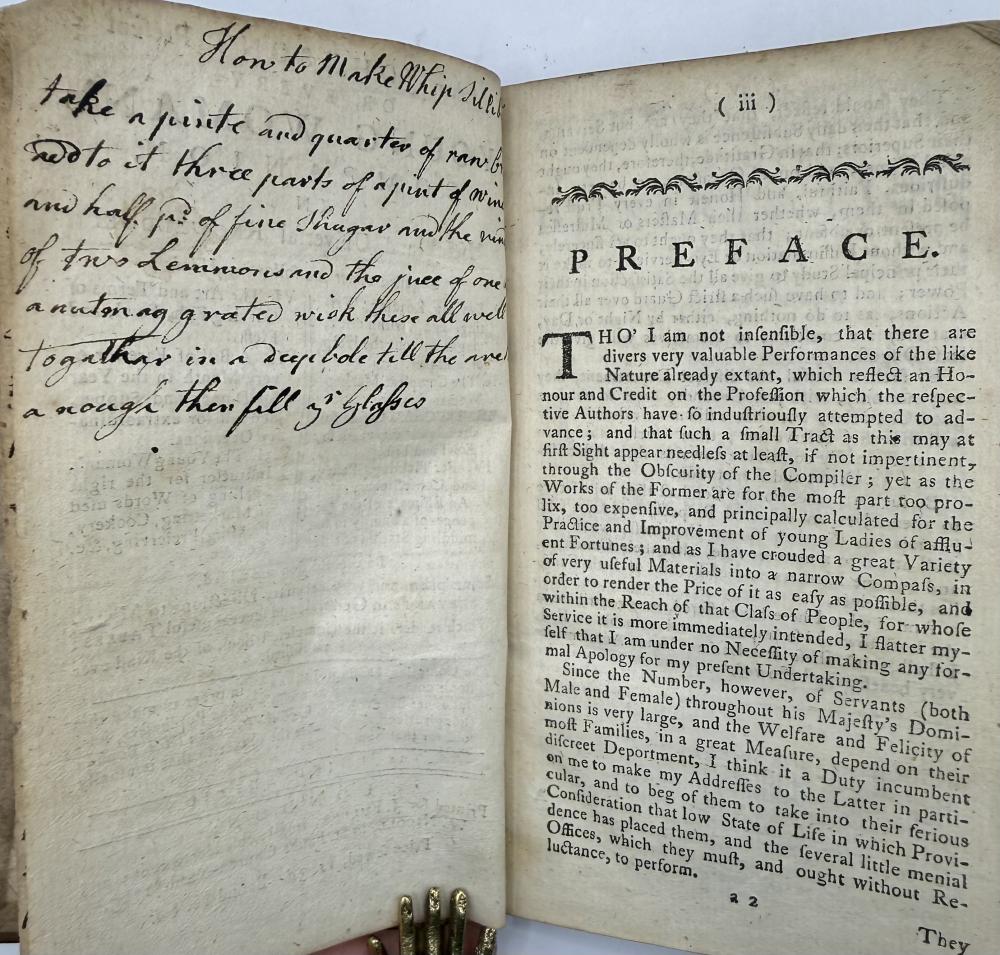 How to Make Whip Sillib
take a pinte and quarter of raw
add to it three parts of a pint of wine
and half pd of fine Shugar and the rin
of two Lemmons and the juce of one
a nutmag grated wisk these all well
togather in a deep bole till the are
a nough then fill yr glasses
( iii )
PREFACE.
THO' I am not inſenſible, that there are
divers very valuable Performances of the like
Nature already extant, which reflect an Ho-
nour and Credit on the Profeſſion which the reſpec-
tive Authors have ſo induſtriouſly attempted to ad-
vance; and that ſuch a ſmall Tract as this may at
firſt Sight appear needleſs at leaſt, if not impertinent,
through the Obſcurity of the Compiler; yet as the
Works of the Former are for the moſt part too pro-
lix, too expenſive, and principally calculated for the
Practice and Improvement of young Ladies of afflu-
ent Fortunes; and as I have crouded a great Variety
of very uſeful Materials into a narrow Compaſs, in
order to render the Price of it as eaſy as poſſible, and
within the Reach of that Claſs of People, for whoſe
Service it is more immediately intended, I flatter my-
ſelf that I am under no Neceſſity of making any for-
mal Apology for my preſent Undertaking.
Since the Number, however, of Servants (both
Male and Female) throughout his Majeſty's Domi-
nions is very large, and the Welfare and Felicity of
moſt Families, in a great Meaſure, depend on their
diſcreet Deportment, I think it a Duty incumbent
on me to make my Addreſſes to the Latter in parti-
cular, and to beg of them to take into their ſerious
Conſideration that low State of Life in which Provi-
dence has placed them, and the ſeveral little menial
Offices, which they muſt, and ought without Re-
luctance, to perform.
a 2
They